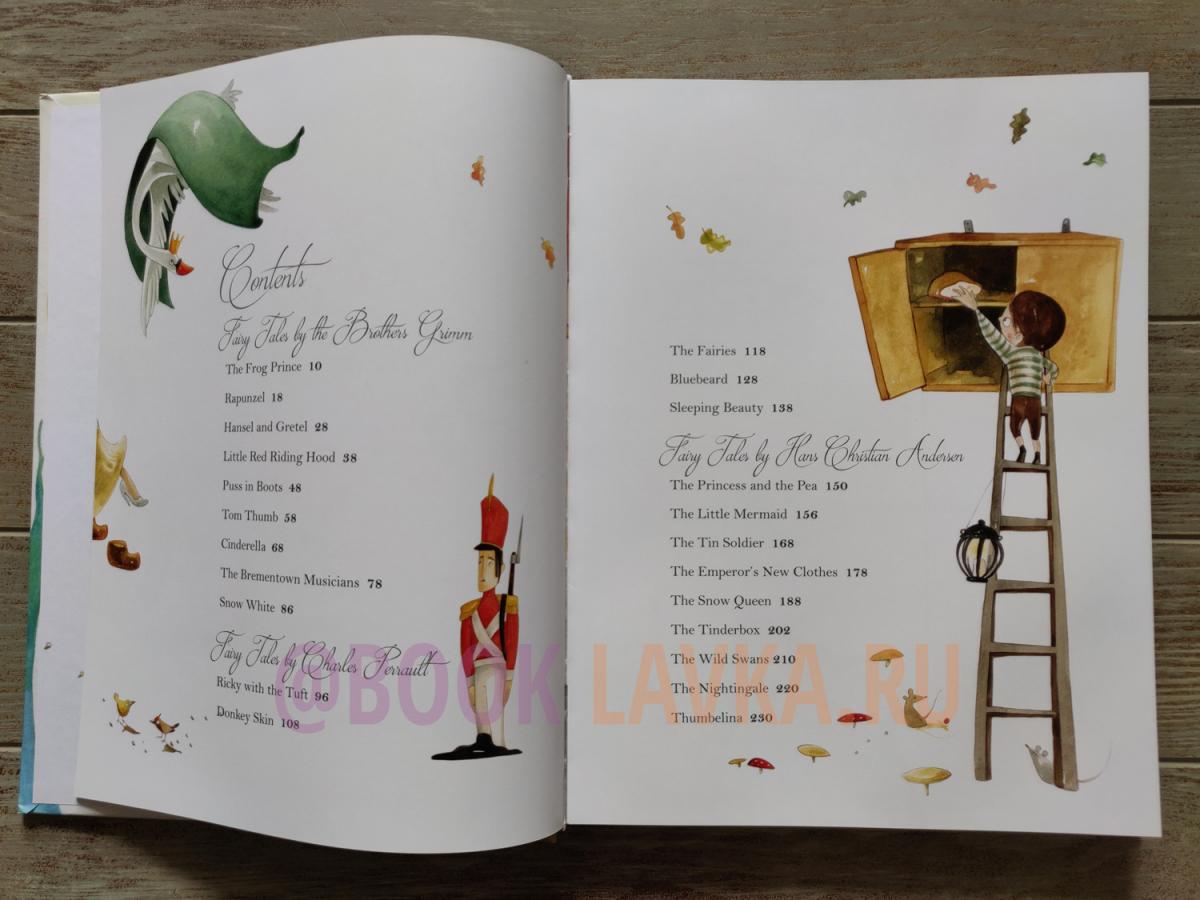 Contents
Fairy Tales by the Brothers Grimm
The Frog Prince 10
Rapunzel 18
Hansel and Gretel 28
Little Red Riding Hood 38
Puss in Boots 48
Tom Thumb 58
Cinderella 68
The Brementown Musicians 78
Snow White 86
Fairy Tales by Charles Perrault
Ricky with the Tuft 96
Donkey Skin 108
The Fairies 118
Bluebeard 128
Sleeping Beauty 138
Fairy Tales by Hans Christian Andersen
The Princess and the Pea 150
The Little Mermaid 156
The Tin Soldier 168
The Emperor's New Clothes 178
The Snow Queen 188
The Tinderbox 202
The Wild Swans 210
The Nightingale 220
Thumbelina 230
@BOOK LAVKA.RU